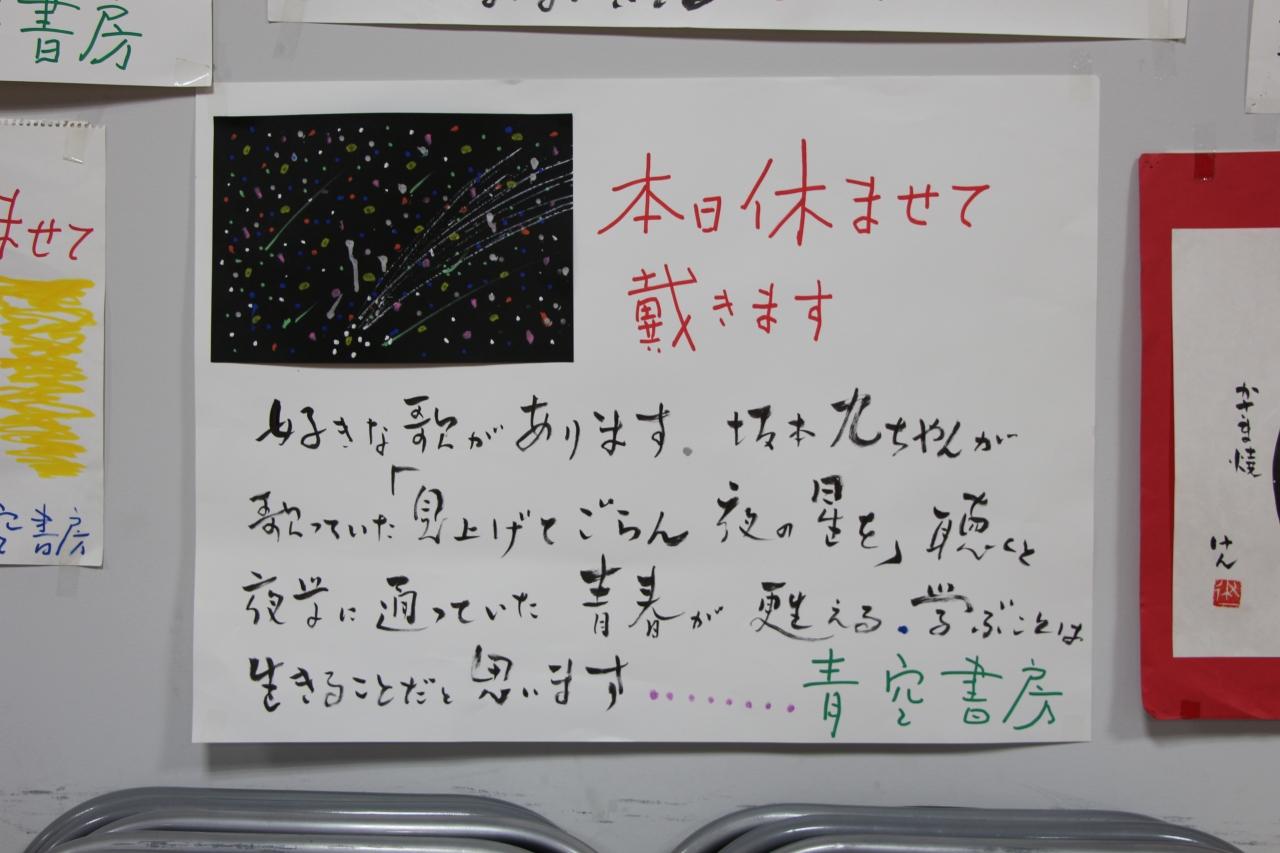 書房
本日休ませて
戴きます
好きな歌があります。坂本九ちゃんが
歌っていた「見上げてごらん夜の星を」聴くと
夜学に通っていた青春が甦える。学ぶことは
生きることだと思います‥‥‥‥青空書房
ませて
空書房
かさま焼
けん